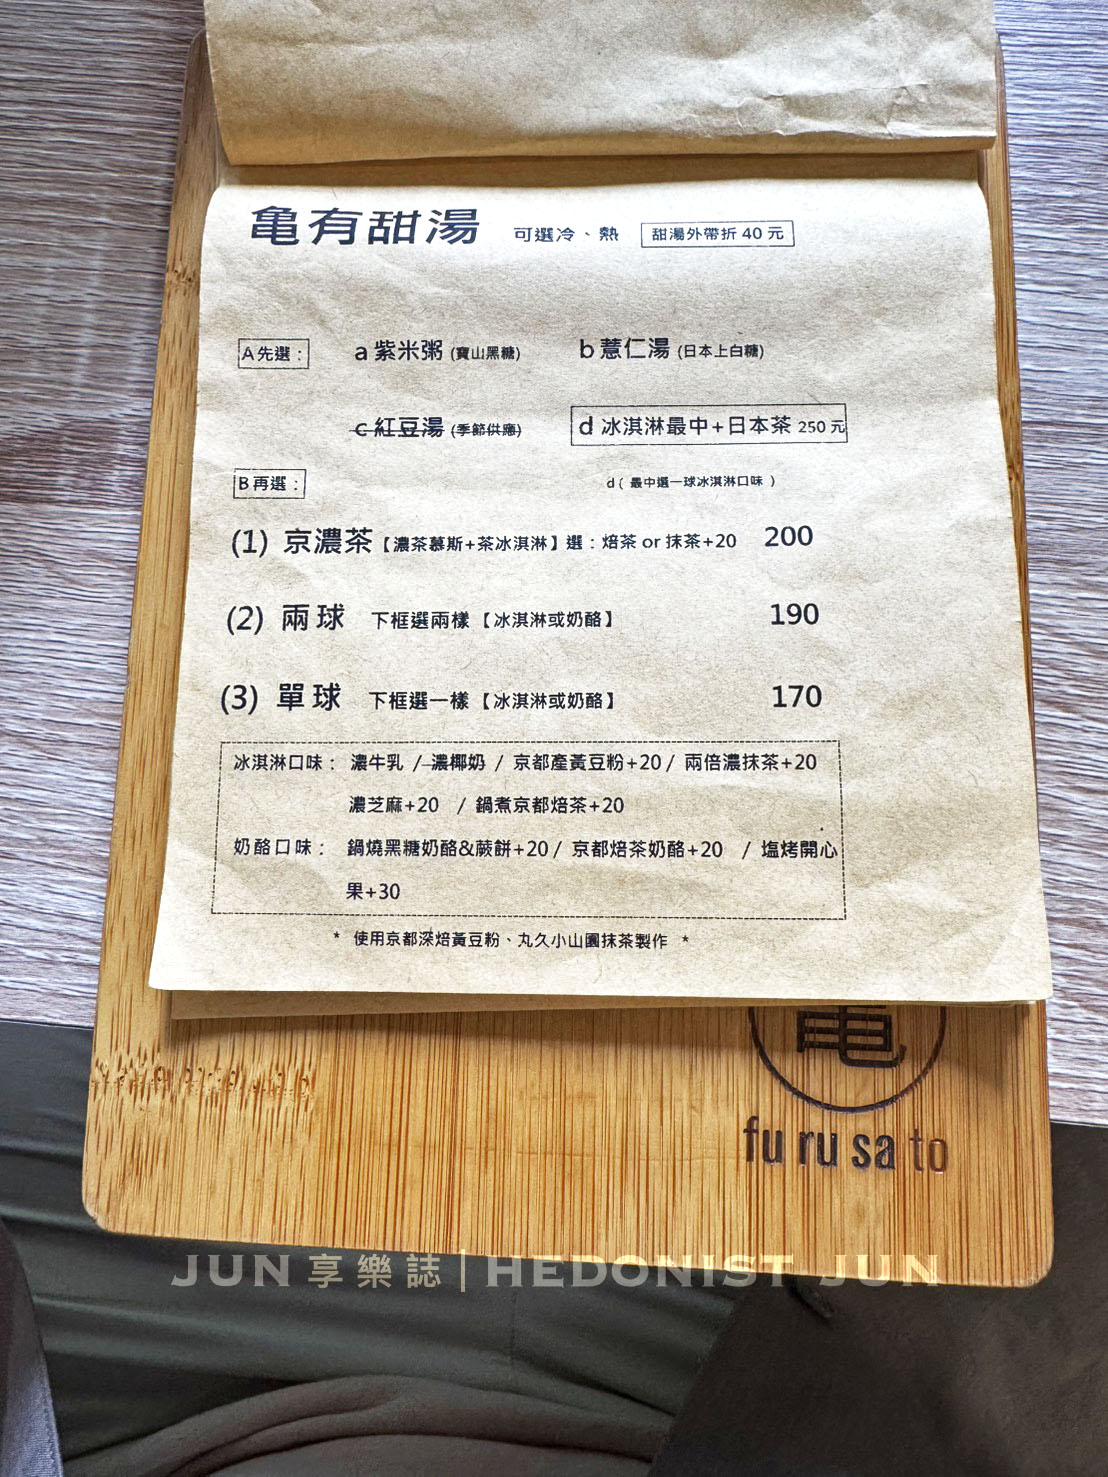 亀有甜湯 可選冷、熱 甜湯外帶折 40 元
A先選： a 紫米粥 (寶山黑糖) b 薏仁湯 (日本上白糖)
c 紅豆湯 (季節供應) d 冰淇淋最中+日本茶 250 元
B再選： d ( 最中選一球冰淇淋口味 )
(1) 京濃茶【濃茶慕斯+茶冰淇淋】選：焙茶 or 抹茶+20 200
(2) 兩球 下框選兩樣【冰淇淋或奶酪】 190
(3) 單球 下框選一樣【冰淇淋或奶酪】 170
冰淇淋口味： 濃牛乳 / 濃椰奶 / 京都產黃豆粉+20 / 兩倍濃抹茶+20
濃芝麻+20 / 鍋煮京都焙茶+20
奶酪口味： 鍋燒黑糖奶酪&蕨餅+20 / 京都焙茶奶酪+20 / 塩烤開心
果+30
* 使用京都深焙黃豆粉、丸久小山園抹茶製作 *
亀
fu ru sa to
JUN 享樂誌 | HEDONIST JUN